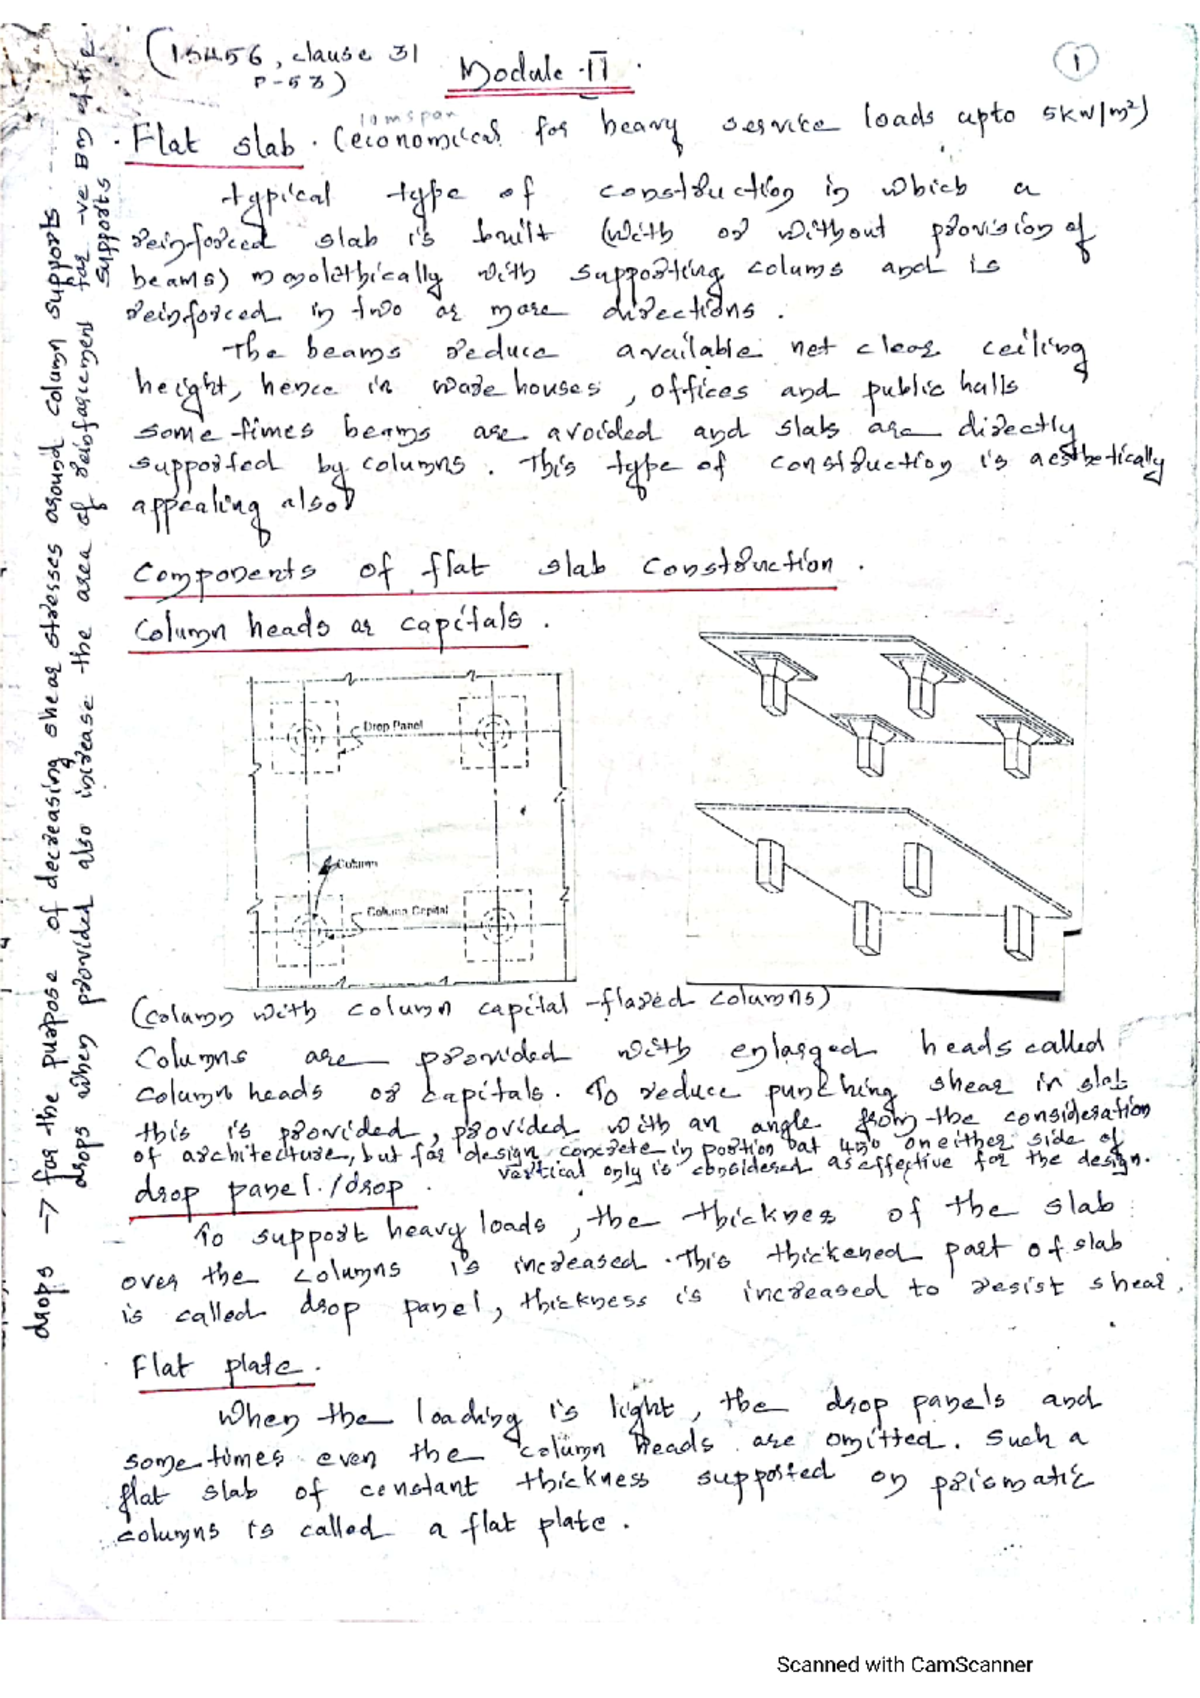 (IS456, clause 31
P-53)
Module-II.
1
10m span
Flat slab. (economical for heavy service loads upto 5kW/m²)
typical type of construction in which a
reinforced slab is built (with or without provision of
beams) monolithically with supporting colums and is
reinforced in two or more directions.
The beams reduce available net clear ceiling
height, hence in ware houses, offices and public halls
some times beams are avoided and slabs are directly
supported by columns. This type of construction is aesthetically
appealing also
Components of flat slab construction.
Column heads or capitals.
Drop Panel
Column
Column Capital
(Column with column capital - flared columns)
Columns are provided with enlarged heads called
column heads or capitals. To reduce punching shear in slab
this is provided, provided with an angle from the consideration
of architecture, but for design, concrete in portion at 45° on either side of
vertical only is considered as effective for the design.
drop panel./drop.
To support heavy loads, the thicknes of the slab
over the columns is increased. This thickened part of slab
is called drop panel, thickness is increased to resist shear.
Flat plate.
When the loading is light, the drop panels and
some times even the column heads are omitted. Such a
flat slab of constant thickness supported on prismatic
columns is called a flat plate.
drops → for the purpose of decreasing shear stresses around column supports
drops when provided also increase the area of reinforcement for -ve BM of the
supports
Scanned with CamScanner